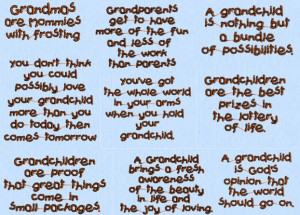 Grandmas
are mommies
with frosting
Grandparents
get to have
more of the fun
and less of
the work
than parents
A grandchild
is nothing but
a bundle
of possibilities.
you don't think
you could
possibly love
your grandchild
more than you
do today then
comes tomorrow
you've got
the whole world
in your arms
when you hold
your
grandchild.
Grandchildren
are the best
prizes in
the lottery
of life.
Grandchildren
are proof
that great things
come in
small packages.
A Grandchild
brings a fresh
awareness
of the beauty
in life and
the joy of loving.
A grandchild
is God's
opinion that
the world
should go on.